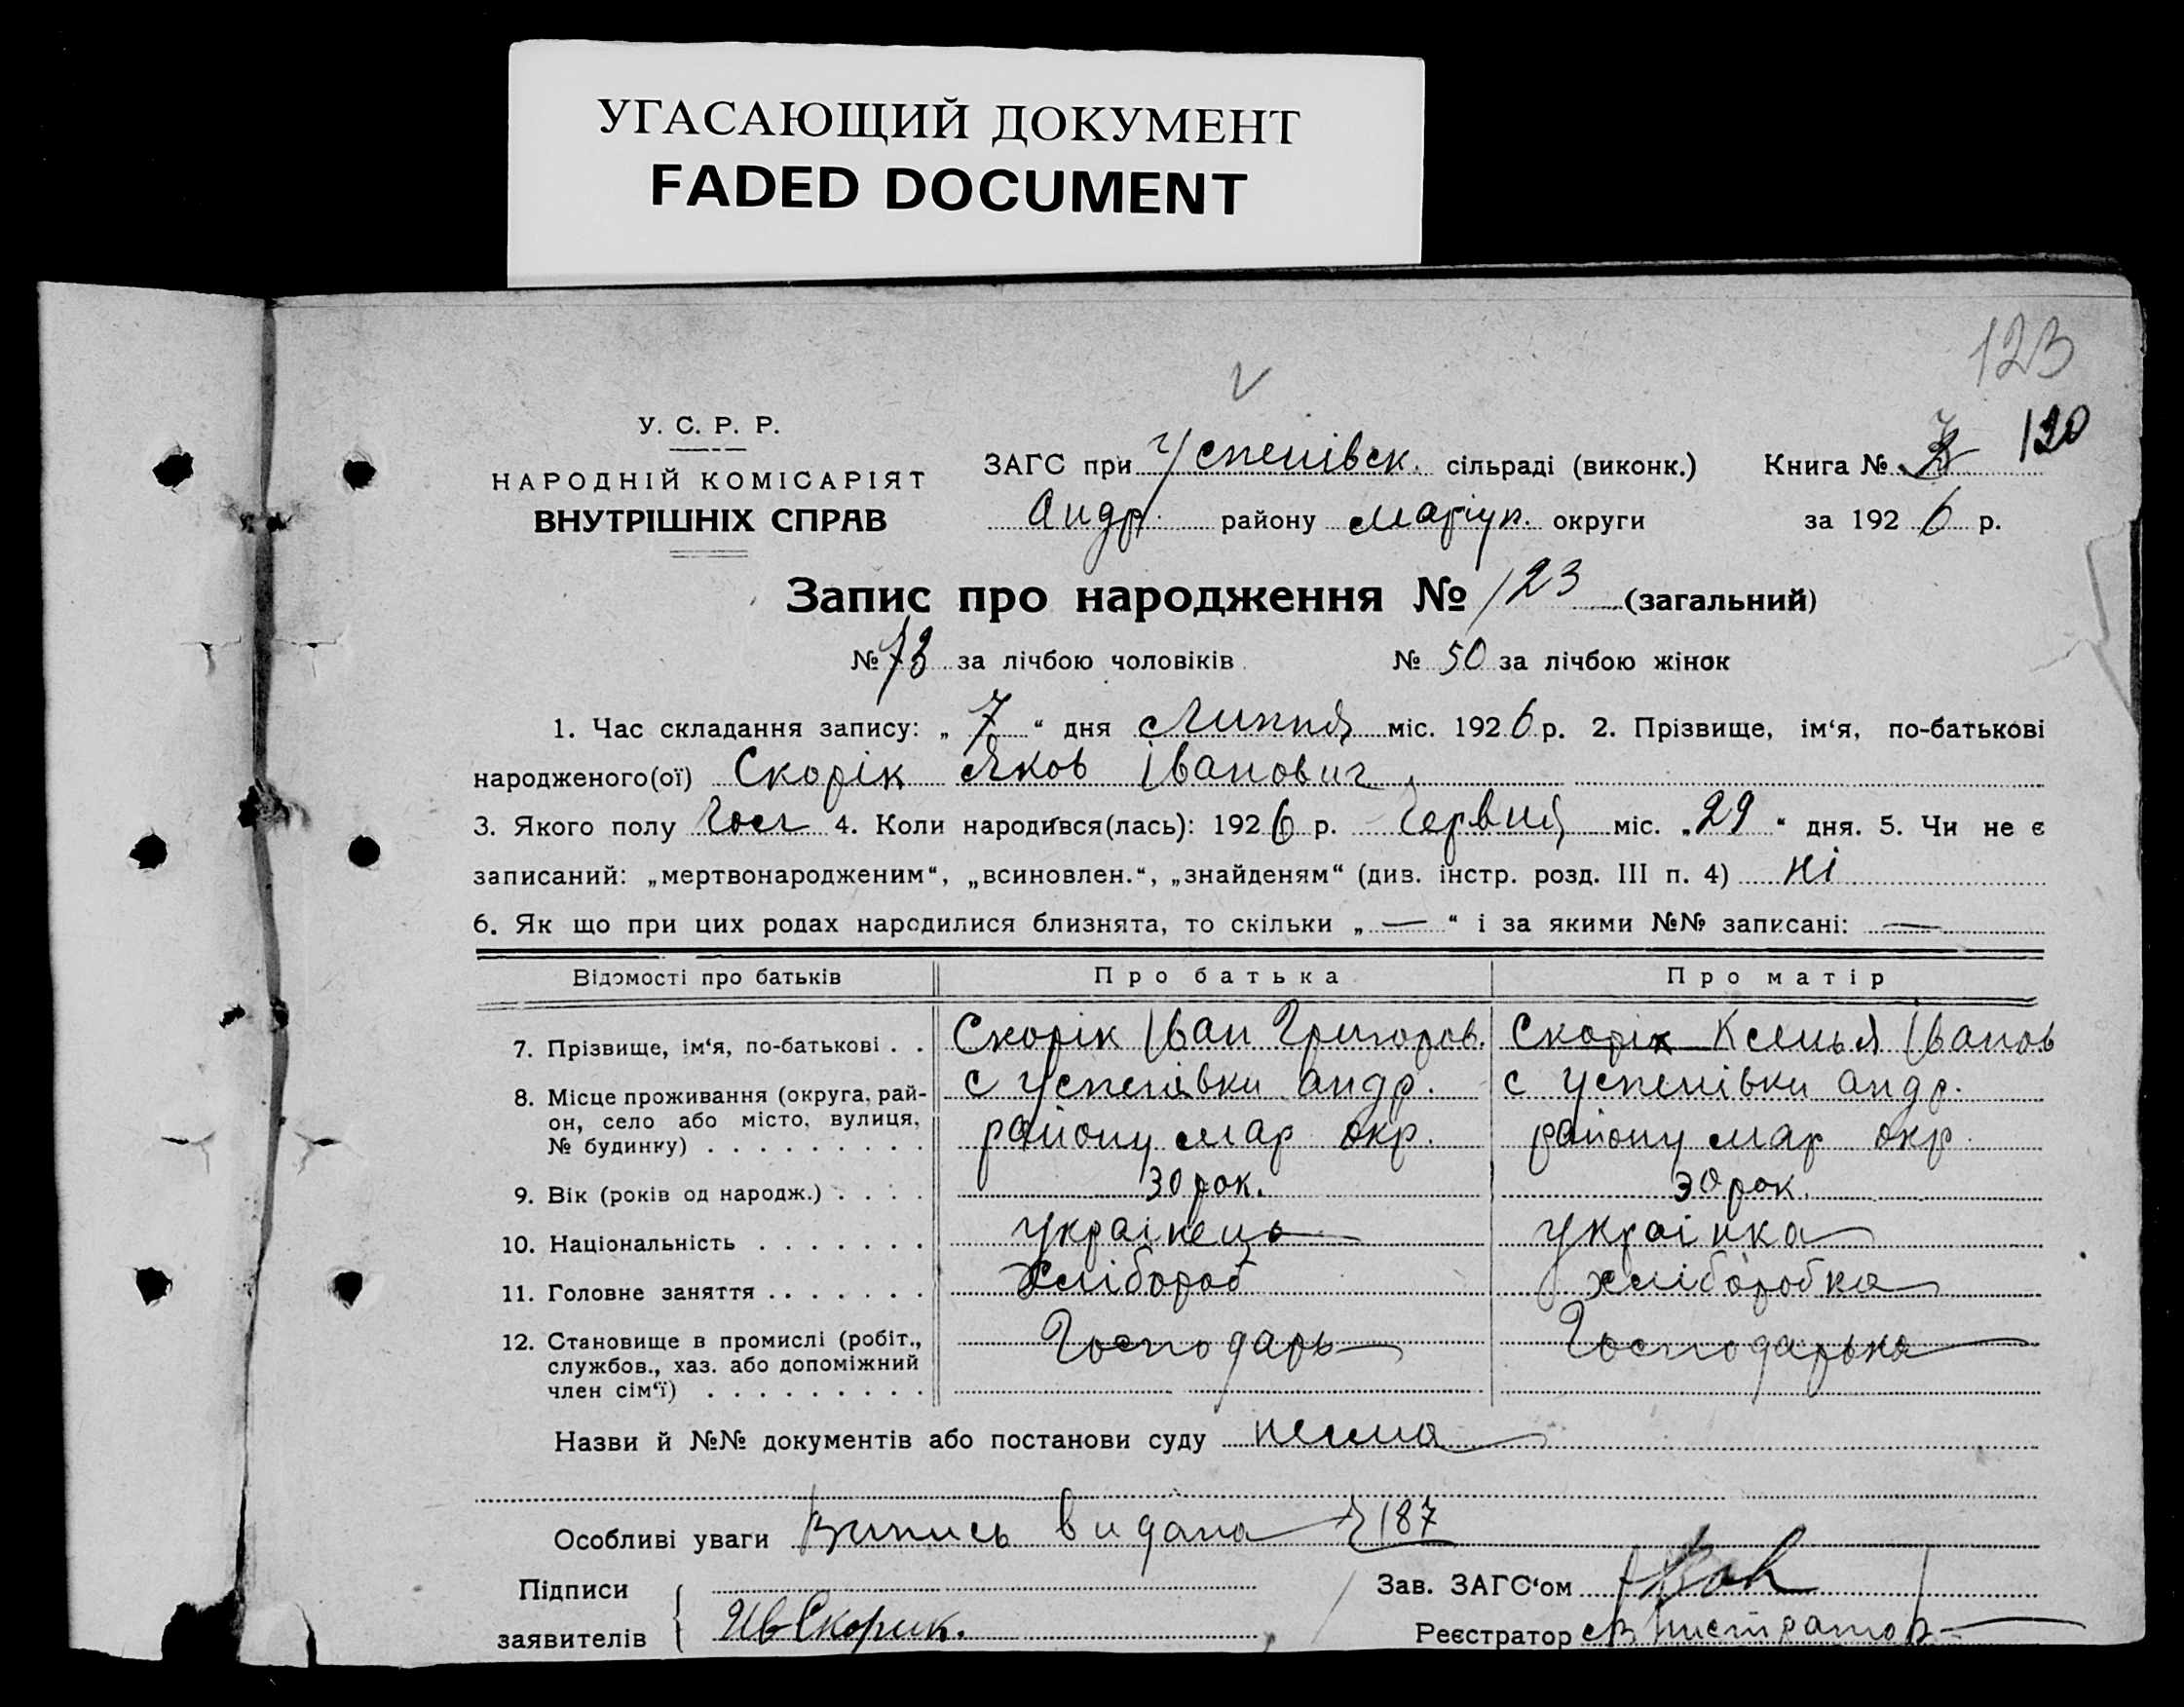 УГАСАЮЩИЙ ДОКУМЕНТ
FADED DOCUMENT
123
120
У. С. Р. Р.
НАРОДНІЙ КОМІСАРІЯТ
ВНУТРІШНІХ СПРАВ
ЗАГС при Успенівськ. сільраді (виконк.) Книга №
Андр. району Маріуп. округи за 1926 р.
Запис про народження № 123 (загальний)
№ 73 за лічбою чоловіків № 50 за лічбою жінок
1. Час складання запису: „7“ дня Липня міс. 1926 р. 2. Прізвище, ім‘я, по-батькові
народженого(ої) Скорік Яков Іванович
3. Якого полу чол 4. Коли народився(лась): 1926 р. Червня міс. „29“ дня. 5. Чи не є
записаний: „мертвонародженим“, „всиновлен.“, „знайденям“ (див. інстр. розд. III п. 4) ні
6. Як що при цих родах народилися близнята, то скільки „—“ і за якими №№ записані: —
Відомості про батьків Про батька Про матір
7. Прізвище, ім‘я, по-батькові . . Скорік Іван Григоров. Скорік Ксенья Іванов
8. Місце проживання (округа, рай- с Успенівки андр. с Успенівки андр.
он, село або місто, вулиця, району мар окр. району мар окр.
№ будинку) . . . . . . . . .
9. Вік (років од народж.) . . . . 30 рок. 30 рок.
10. Національність . . . . . . . українець українка
11. Головне заняття . . . . . . . хлібороб хлібօробка
12. Становище в промислі (робіт., Господарь Господарька
службов., хаз. або допоміжний
член сім‘ї) . . . . . . . . .
Назви й №№ документів або постанови суду нема
Особливі уваги Випись видана № 187
Підписи Зав. ЗАГС‘ом
заявителів Ив Скорик. Реєстратор